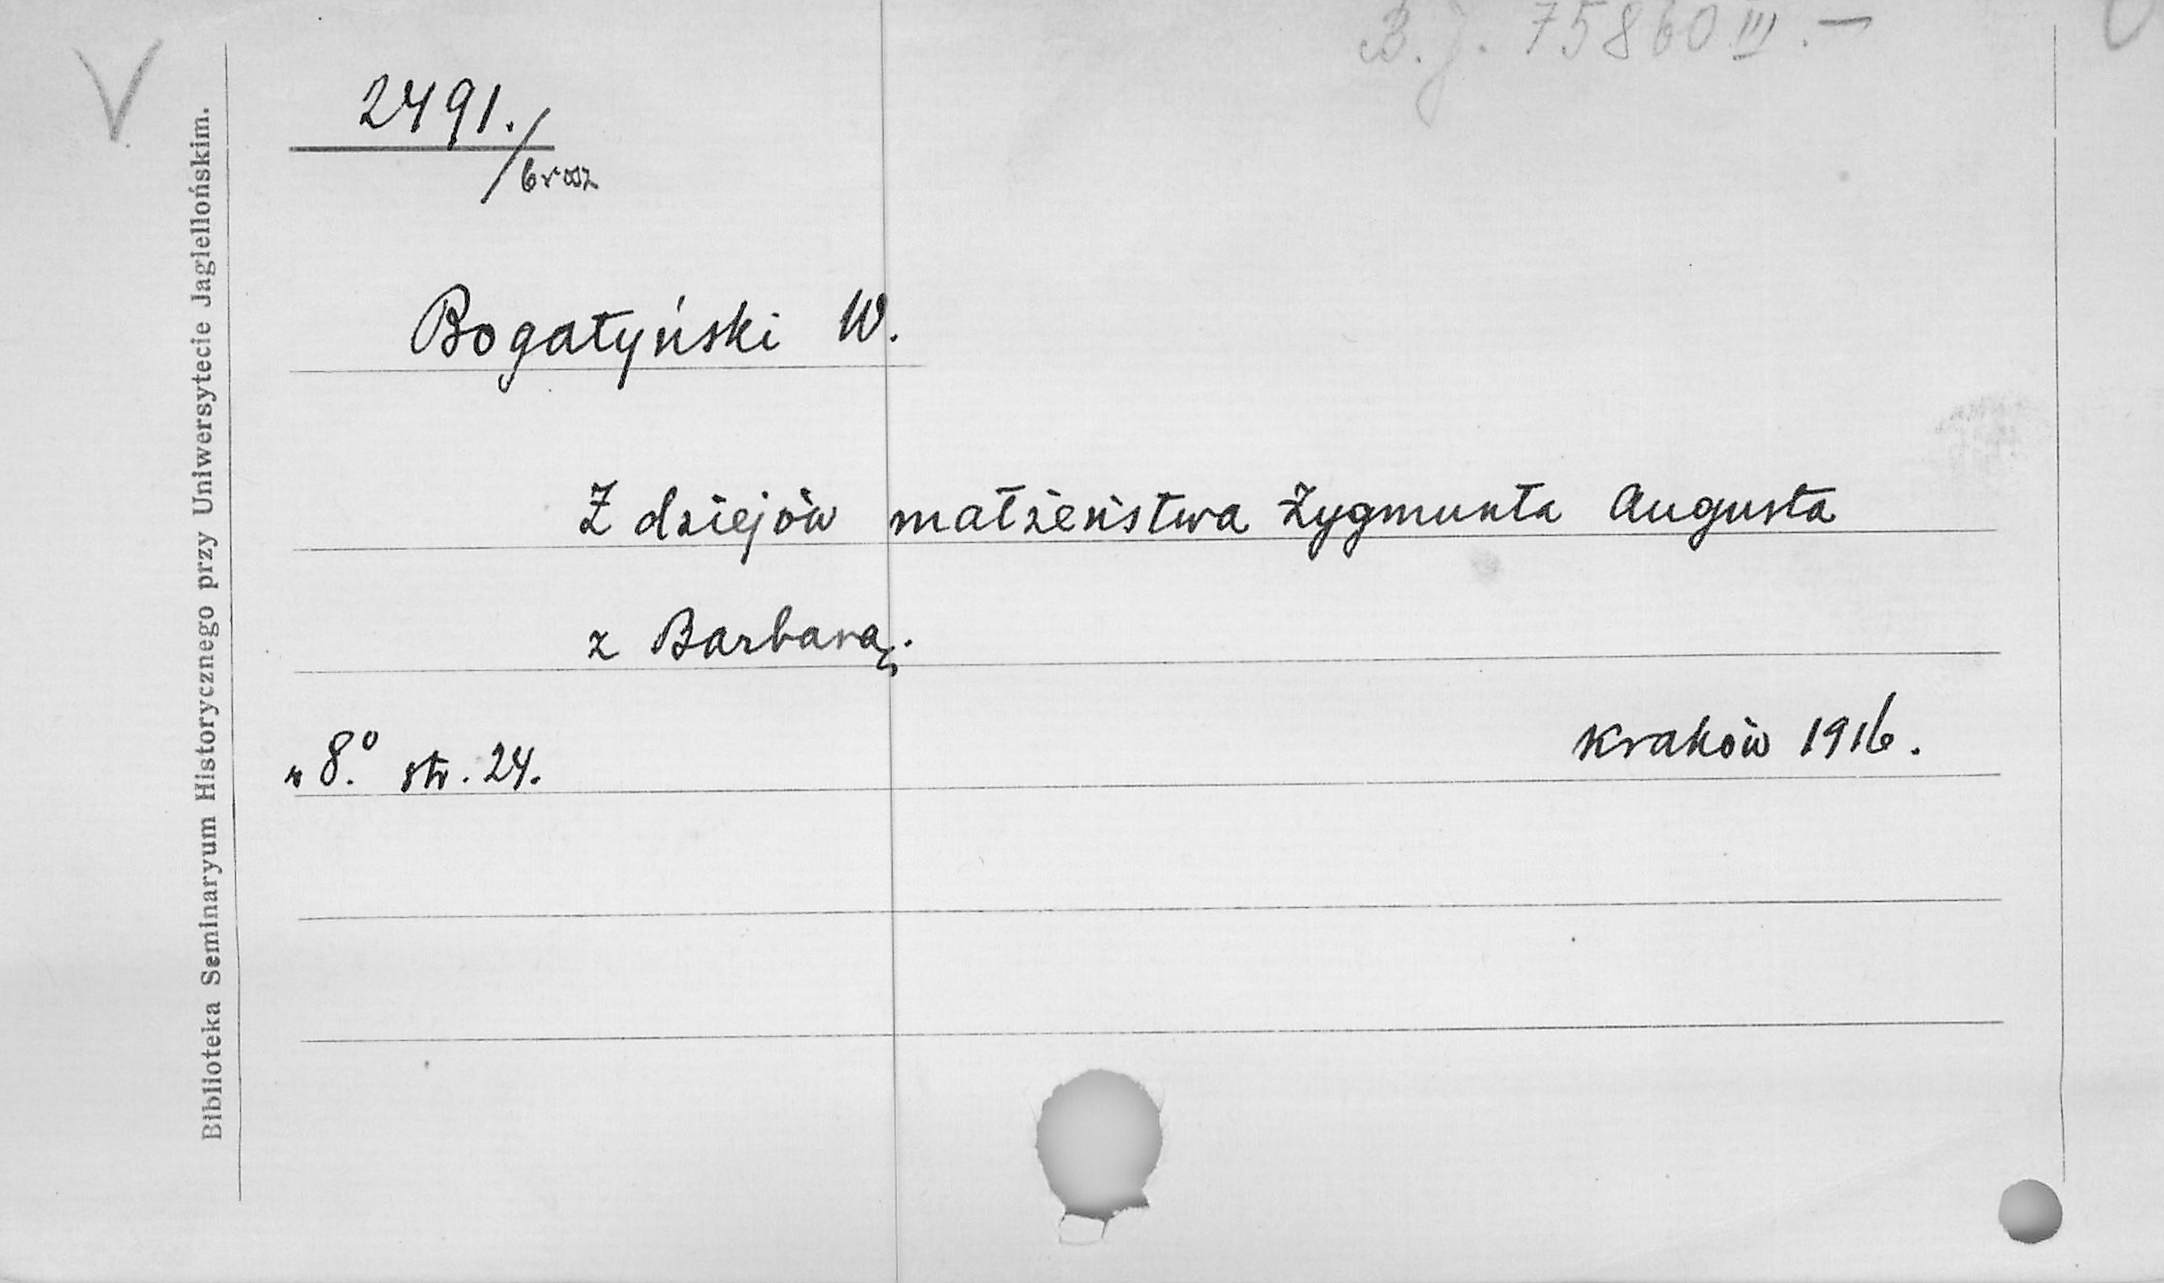 B. J. 75860 III. —
2491./brosz
Bogatyński W.
Z dziejów małżeństwa Zygmunta Augusta
z Barbarą.
w 8.° str. 24.
Kraków 1916.
Biblioteka Seminaryum Historycznego przy Uniwersytecie Jagiellońskim.